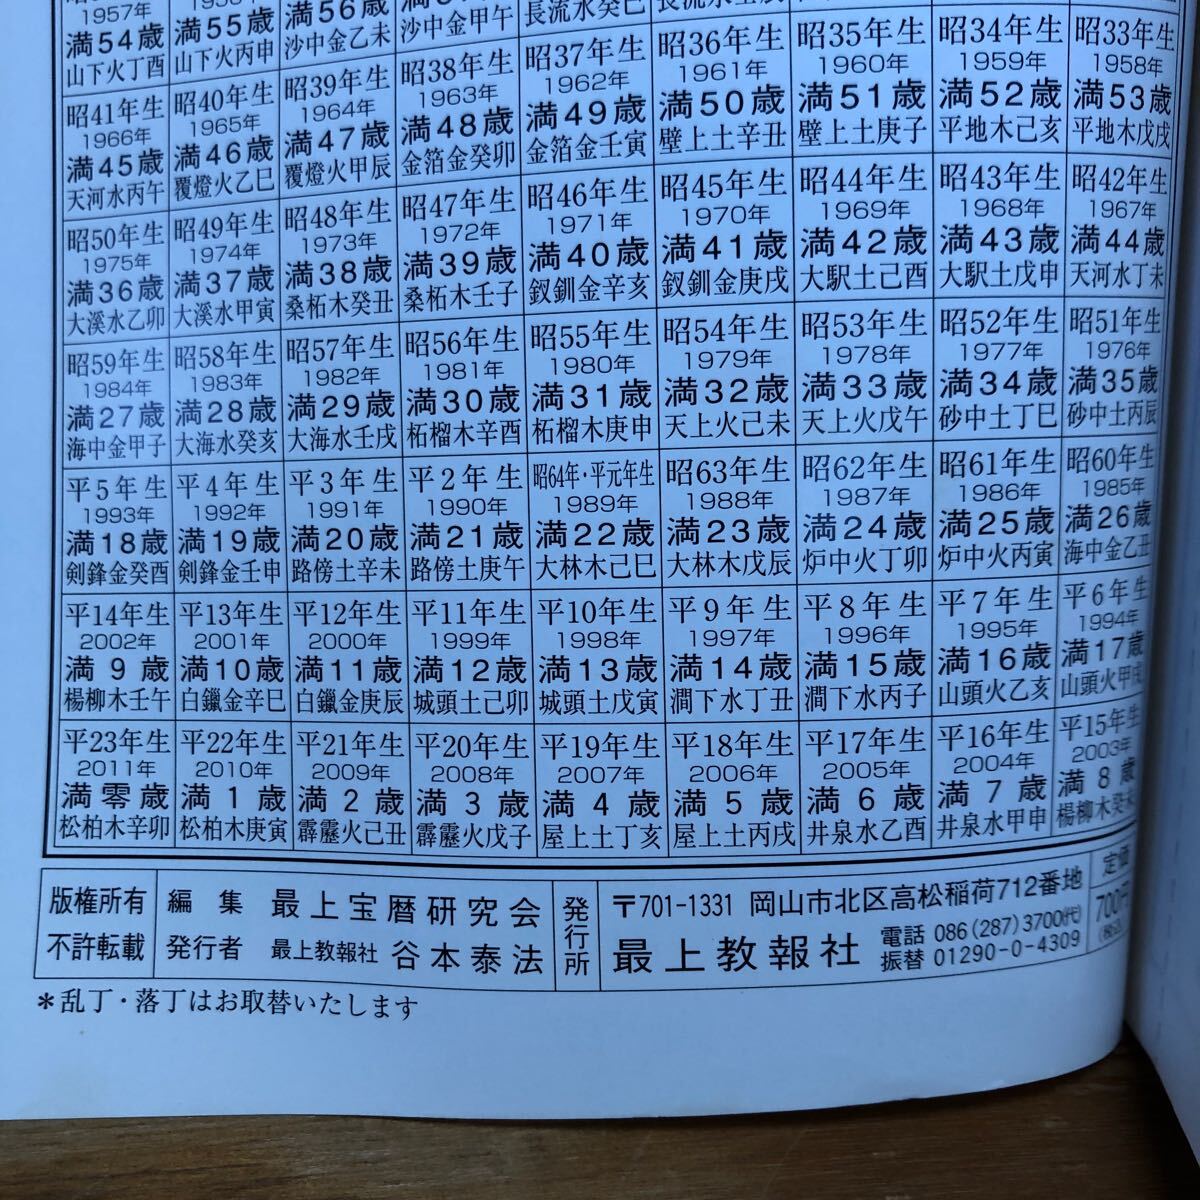 1957年
満54歳 満55歳 満56歳
山下火丁酉 山下火丙申 沙中金乙未 沙中金甲午 長流水癸巳
昭41年生 昭40年生 昭39年生 昭38年生 昭37年生 昭36年生 昭35年生 昭34年生 昭33年生
1966年 1965年 1964年 1963年 1962年 1961年 1960年 1959年 1958年
満45歳 満46歳 満47歳 満48歳 満49歳 満50歳 満51歳 満52歳 満53歳
天河水丙午 覆燈火乙巳 覆燈火甲辰 金箔金癸卯 金箔金壬寅 壁上土辛丑 壁上土庚子 平地木己亥 平地木戊戌
昭50年生 昭49年生 昭48年生 昭47年生 昭46年生 昭45年生 昭44年生 昭43年生 昭42年生
1975年 1974年 1973年 1972年 1971年 1970年 1969年 1968年 1967年
満36歳 満37歳 満38歳 満39歳 満40歳 満41歳 満42歳 満43歳 満44歳
大溪水乙卯 大溪水甲寅 桑柘木癸丑 桑柘木壬子 釵釧金辛亥 釵釧金庚戌 大駅土己酉 大駅土戊申 天河水丁未
昭59年生 昭58年生 昭57年生 昭56年生 昭55年生 昭54年生 昭53年生 昭52年生 昭51年生
1984年 1983年 1982年 1981年 1980年 1979年 1978年 1977年 1976年
満27歳 満28歳 満29歳 満30歳 満31歳 満32歳 満33歳 満34歳 満35歳
海中金甲子 大海水癸亥 大海水壬戌 柘榴木辛酉 柘榴木庚申 天上火己未 天上火戊午 砂中土丁巳 砂中土丙辰
平5年生 平4年生 平3年生 平2年生 昭64年・平元年生 昭63年生 昭62年生 昭61年生 昭60年生
1993年 1992年 1991年 1990年 1989年 1988年 1987年 1986年 1985年
満18歳 満19歳 満20歳 満21歳 満22歳 満23歳 満24歳 満25歳 満26歳
剣鋒金癸酉 剣鋒金壬申 路傍土辛未 路傍土庚午 大林木己巳 大林木戊辰 炉中火丁卯 炉中火丙寅 海中金乙丑
平14年生 平13年生 平12年生 平11年生 平10年生 平9年生 平8年生 平7年生 平6年生
2002年 2001年 2000年 1999年 1998年 1997年 1996年 1995年 1994年
満9歳 満10歳 満11歳 満12歳 満13歳 満14歳 満15歳 満16歳 満17歳
楊柳木壬午 白鑞金辛巳 白鑞金庚辰 城頭土己卯 城頭土戊寅 澗下水丁丑 澗下水丙子 山頭火乙亥 山頭火甲戌
平23年生 平22年生 平21年生 平20年生 平19年生 平18年生 平17年生 平16年生 平15年生
2011年 2010年 2009年 2008年 2007年 2006年 2005年 2004年 2003年
満零歳 満1歳 満2歳 満3歳 満4歳 満5歳 満6歳 満7歳 満8歳
松柏木辛卯 松柏木庚寅 霹靂火己丑 霹靂火戊子 屋上土丁亥 屋上土丙戌 井泉水乙酉 井泉水甲申 楊柳木癸未
版権所有
不許転載
編集 最上宝暦研究会
発行者 最上教報社 谷本泰法
発行所
〒701-1331 岡山市北区高松稲荷712番地
最上教報社
電話 086(287)3700(代)
振替 01290-0-4309
定価
700円
(税込)
＊乱丁・落丁はお取替いたします